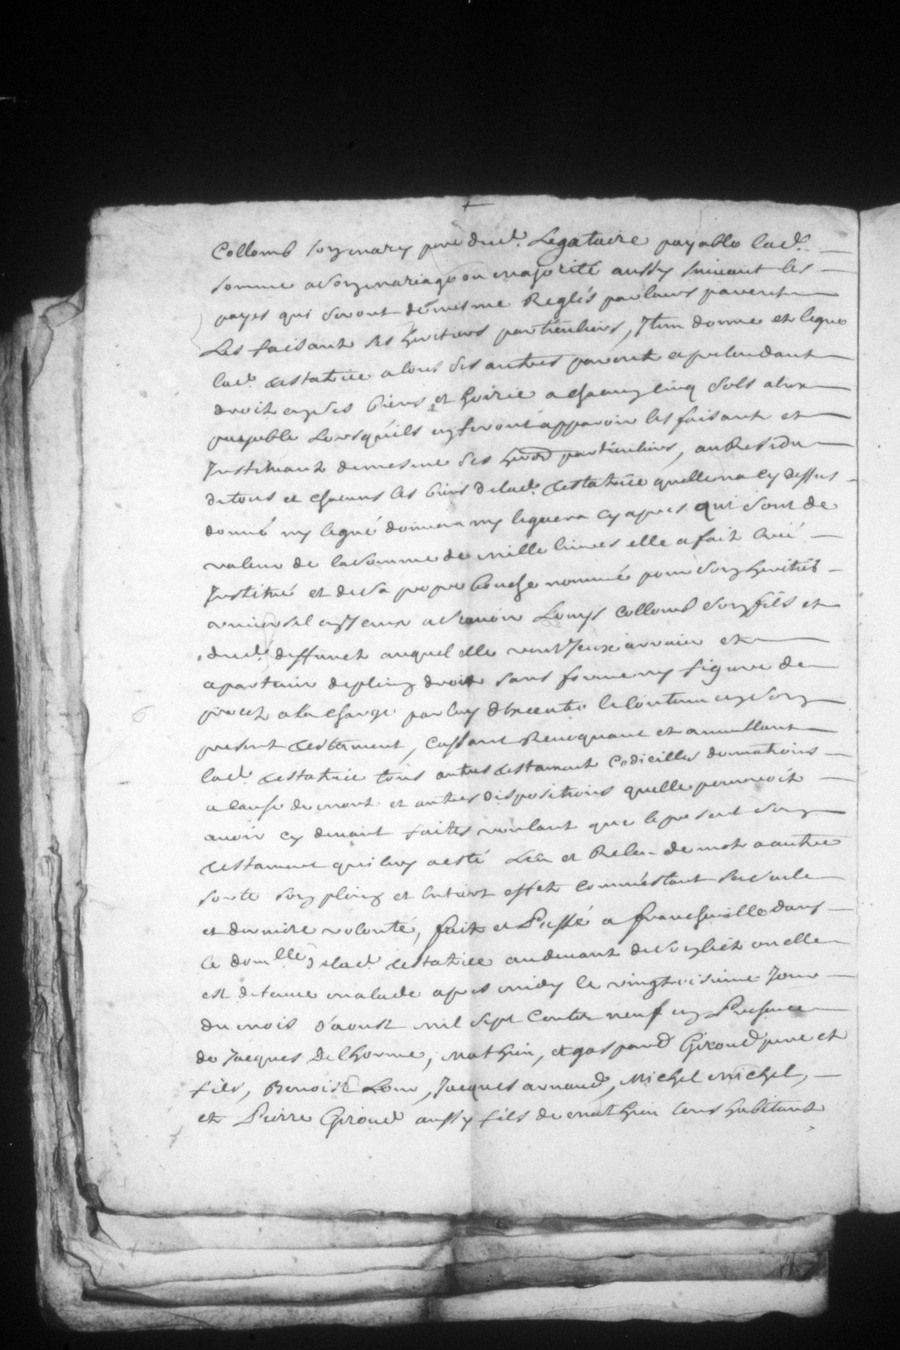 Collomb son mary pere dud. Legataire payable lad.
somme a son mariage ou majorité aussy suivant les
payes qui seront de mesme Reglés par leurs parents
Les faisant ses heritiers particuliers, Item donne et legue
lad. testatrice a tous ses autres parents a pretendant
droit en ses biens et hoirie a chacun cinq sols a eux
payable Lorsqu'ils en feront apparoir les faisant et
Instituant de mesme ses hered particuliers, au Residu
de tous et chacuns les biens de lad. testatrice quelle na cy dessus
donné ny legué donnera ny leguera cy apres qui sont de
valeur de la somme de mille livres elle a fait creé
Institué et de sa propre bouche nommé pour son heritier
universel en Iceux a scavoir Louys Collomb son fils et
dud. deffunct auquel elle veut Iceux arriver et
apartenir de plein droit sans forme ny figure de
procez a la charge par luy d'executer le contenu en son
present testament, Cassant Revoquant et annullant
lad. testatrice tous autres testament Codicilles donnations
a cause de mort et autres dispositions quelle pourroit
avoir cy devant faites voulant que le present son
testament qui luy a esté Leu et Releu de mot a autre
sorte son plein et entiert effet comme estant sa seule
et derniere volonté, fait et Passé a francheville dans
le domlle de lad. testatrice au devant de son lict ou elle
est detenue malade apres midy le vingtroisieme Jour
du mois d'aoust mil sept Cents neuf en Presence
de Jacques Delhorme, Mathieu, et gaspard Giroud pere et
fils, Benoist Lour, Jacques arnaud, Michel Michel,
et Pierre Giroud aussy fils de mathieu tous habitants